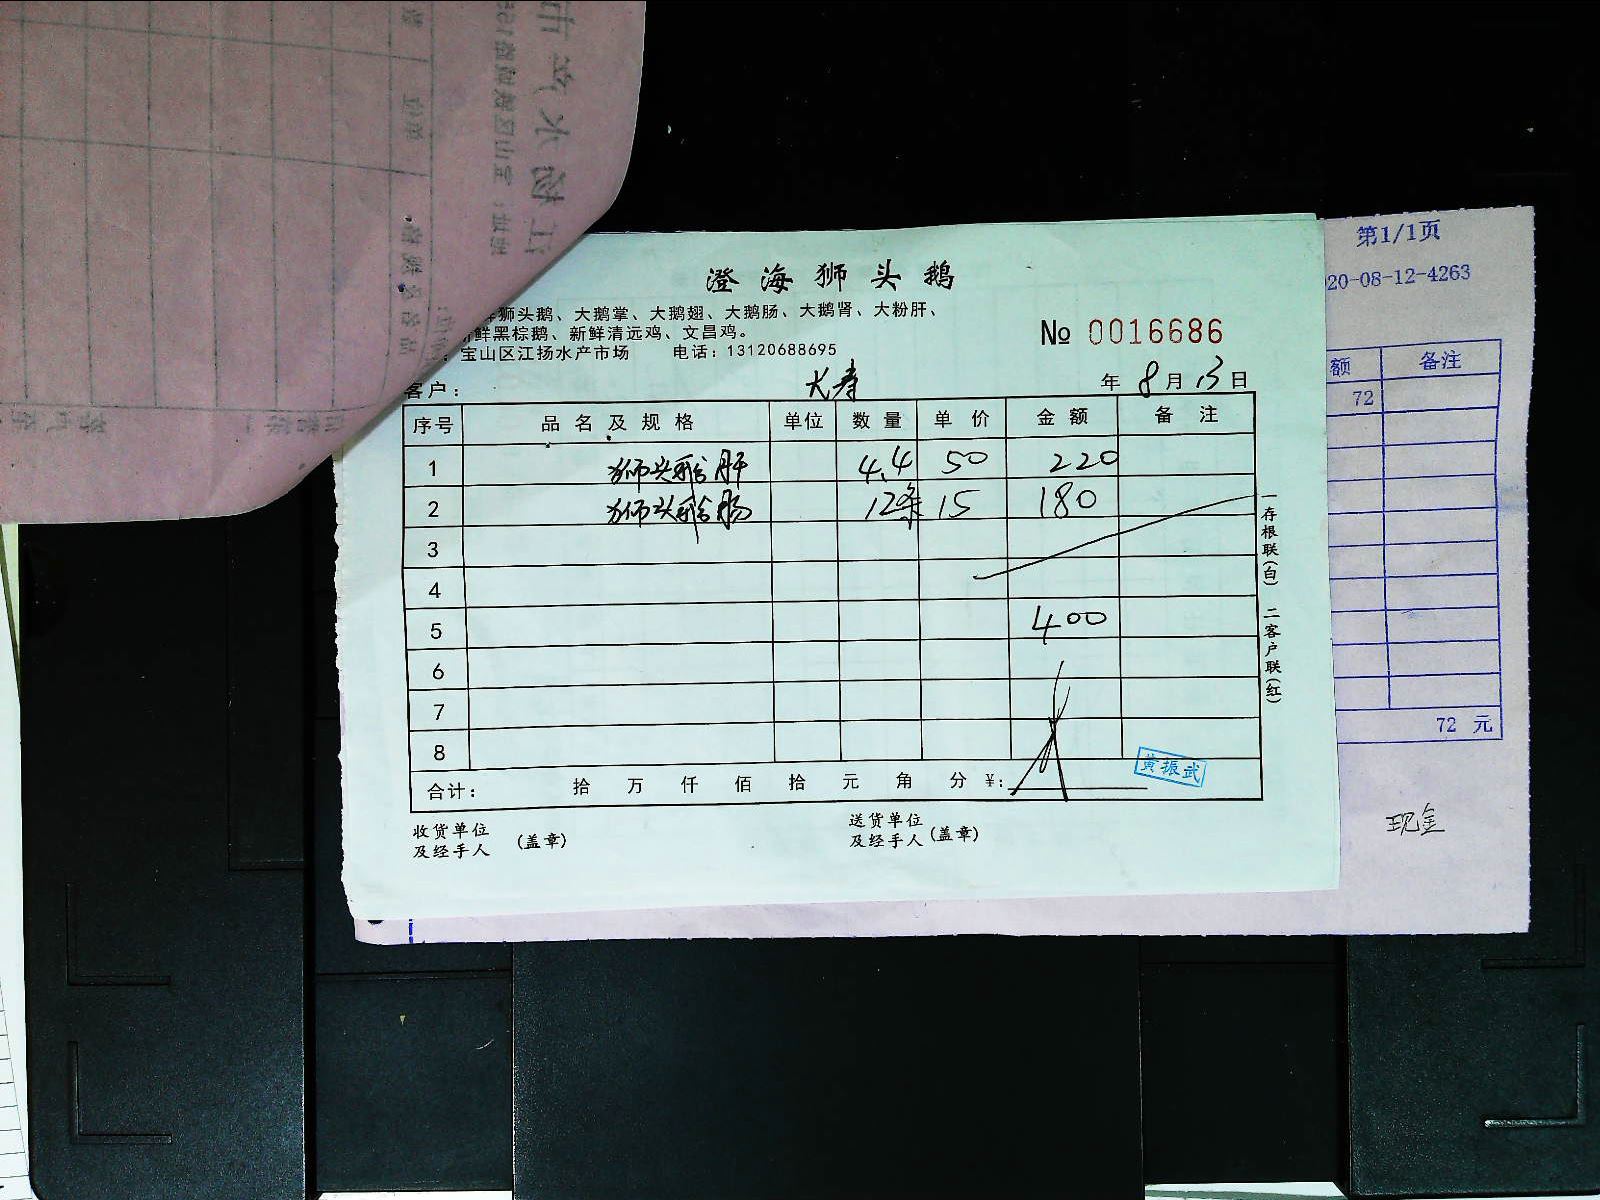 澄海狮头鹅
狮头鹅、大鹅掌、大鹅翅、大鹅肠、大鹅肾、大粉肝、
鲜黑棕鹅、新鲜清远鸡、文昌鸡。
宝山区江扬水产市场 电话：13120688695
№ 0016686
客户： 大寿 年 8月13日
序号 品名及规格 单位 数量 单价 金额 备注
1 狮头鹅肝 4.4 50 220
2 狮头鹅肠 12条 15 180
3
4
5 400
6
7
8
合计： 拾 万 仟 佰 拾 元 角 分 ¥：
黄振武
收货单位及经手人 (盖章) 送货单位及经手人 (盖章)
一存根联(白) 二客户联(红)
第1/1页
20-08-12-4263
额 备注
72
72 元
现金